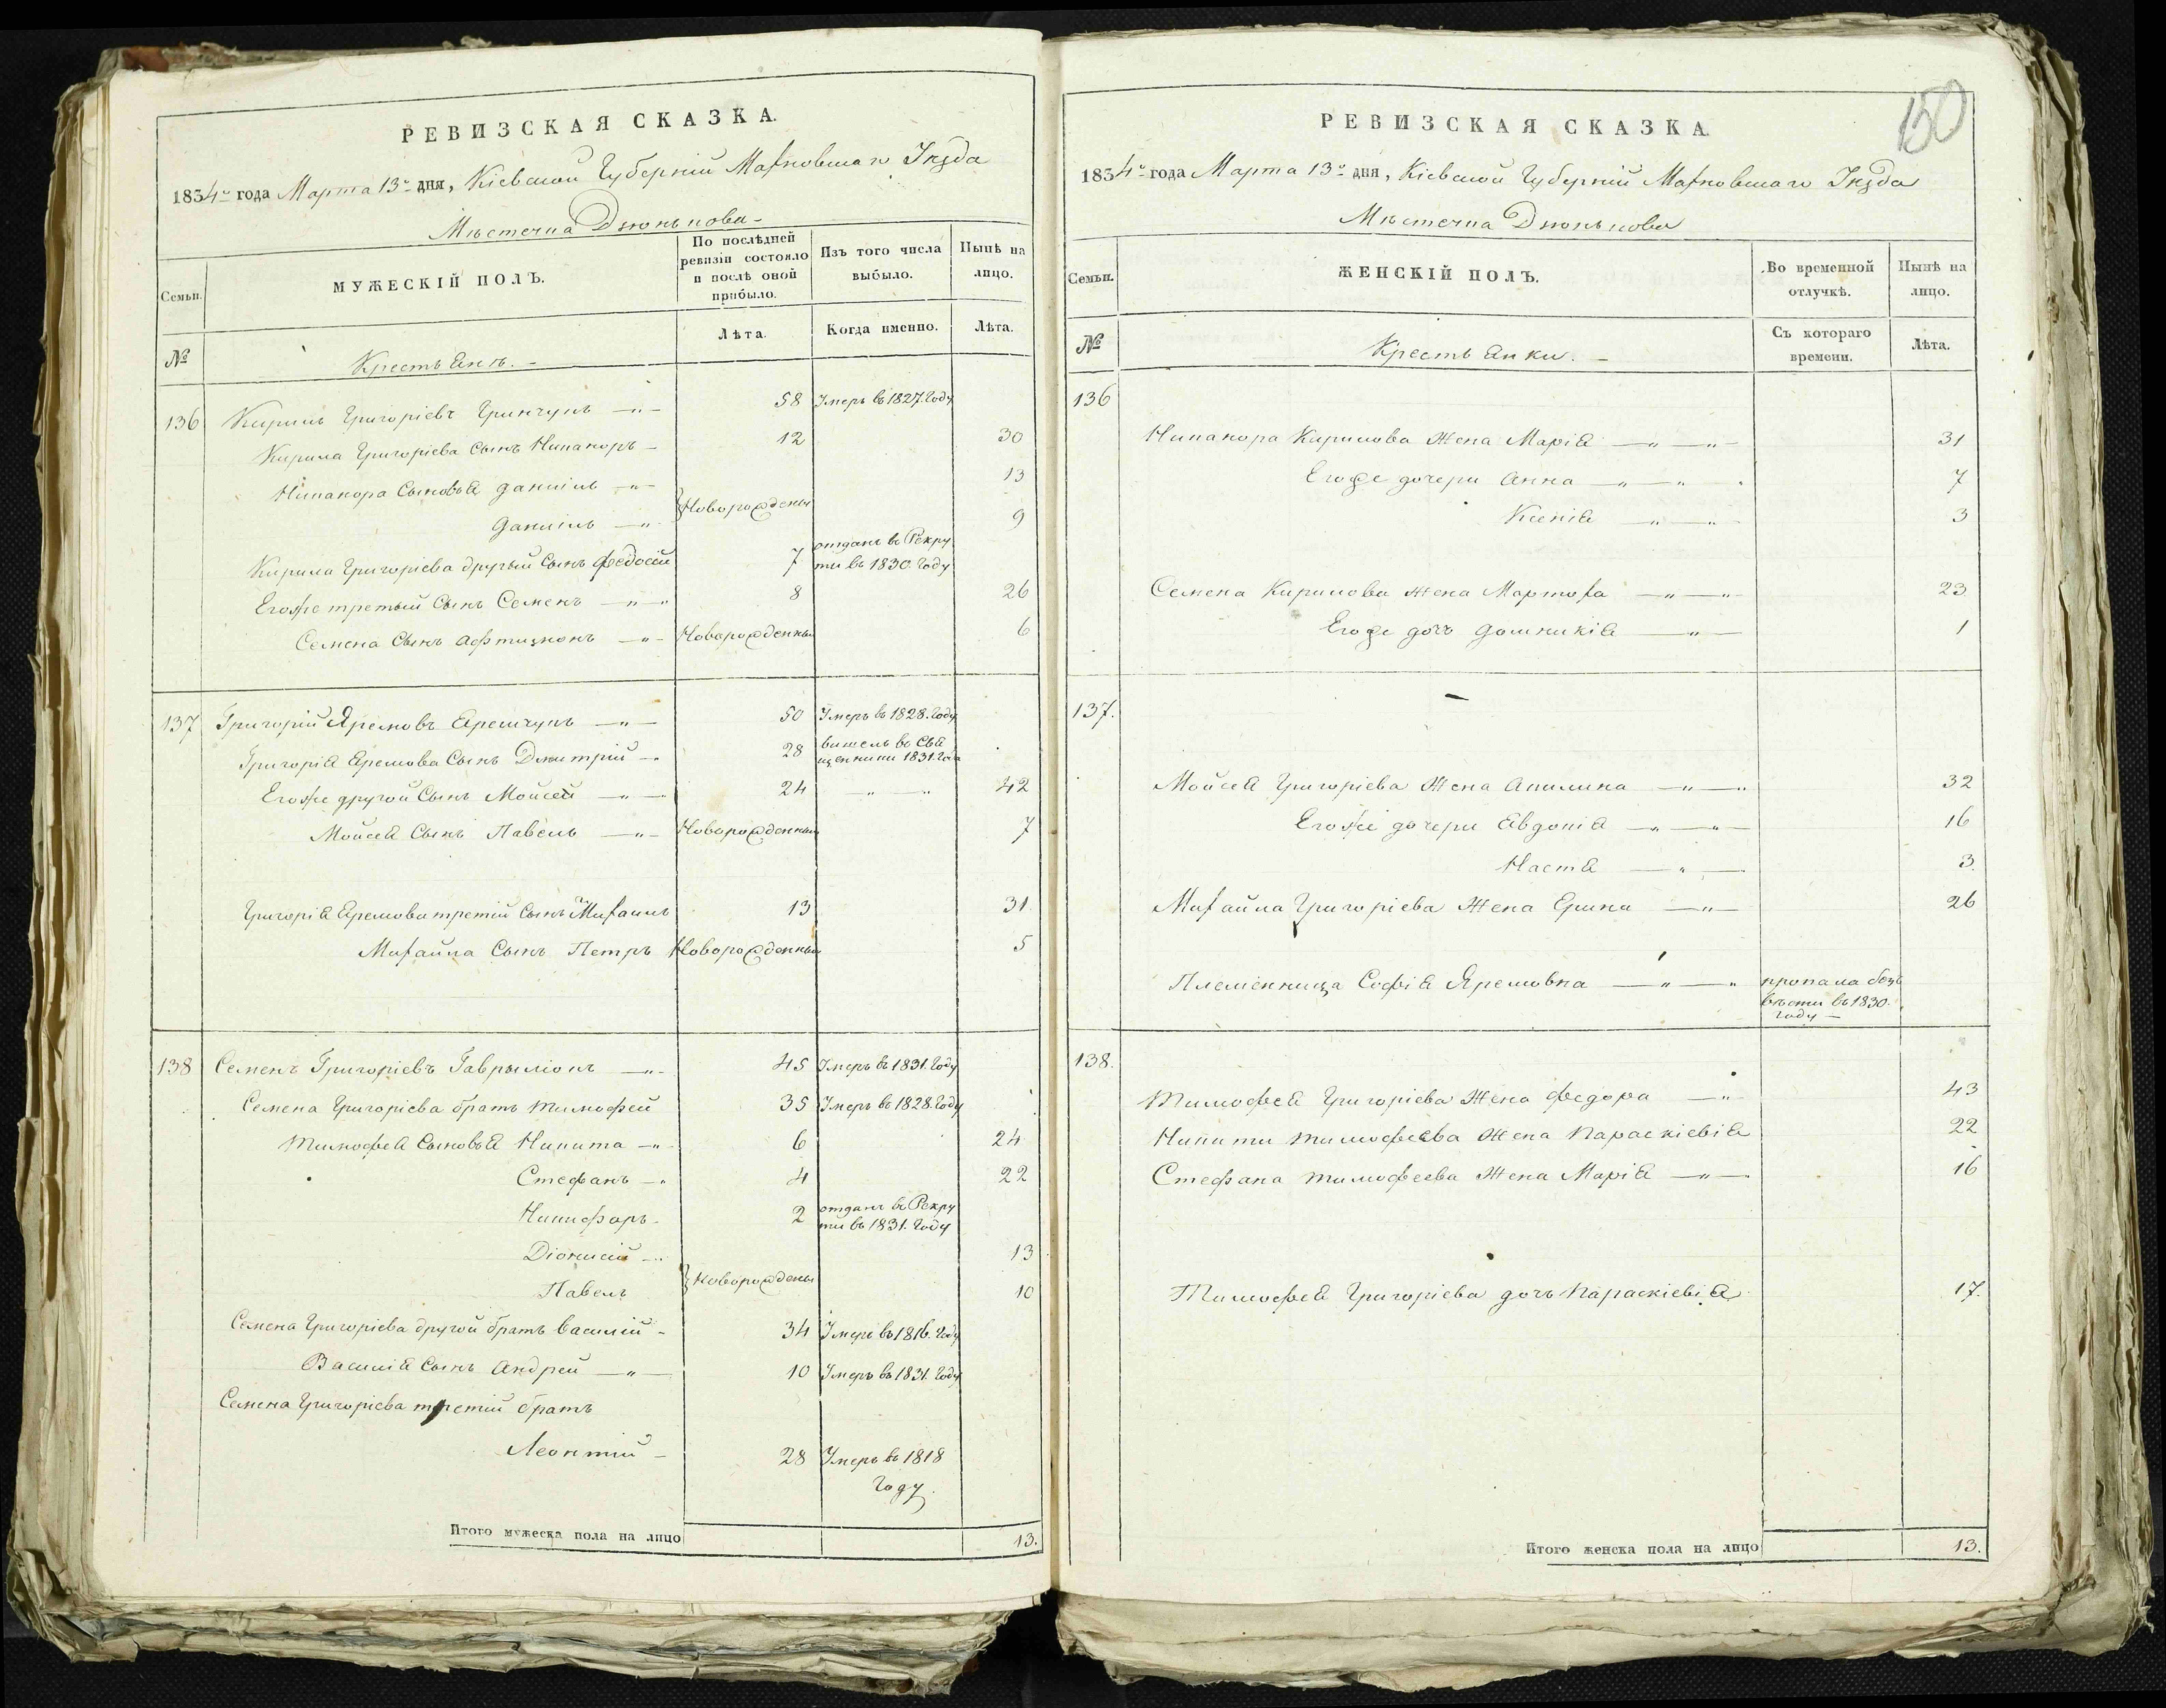 РЕВИЗСКАЯ СКАЗКА.
1834го года Марта 13го дня, Кіевской Губерніи Махновшаго Уѣзда
Мѣстечка Дзюнькова
Семьи.
МУЖЕСКІЙ ПОЛЪ.
По послѣдней ревизіи состояло и послѣ оной прибыло.
Изъ того числа выбыло.
Нынѣ на лицо.
№
Крестьянъ.
Лѣта.
Когда именно.
Лѣта.
136 Кирилъ Григоріевъ Гринчукъ 58 Умеръ въ 1827. Году
Кирила Григоріева Сынъ Никаноръ 12 30
Никанора Сыновья Даніилъ 13
Новорождены
Даніилъ 9
Кирила Григоріева другый Сынъ Федосій 7 отданъ въ Рекруты въ 1830. Году
Егоже третый Сынъ Семенъ 8 26
Семена Сынъ Новорожденный 6
137 Григорій Яремовъ Яремчукъ 50 Умеръ въ 1828. Году
Григорія Яремова Сынъ Дмитрій 28 вишелъ въ Священники 1831. Года
Егоже другой Сынъ Мойсей 24 42
Мойсея Сынъ Павелъ Новорожденный 7
Григорія Яремова третій Сынъ Михаилъ 13 31
Михайла Сынъ Петръ Новорожденный 5
138 Семенъ Григоріевъ Гаврылюкъ 45 Умеръ въ 1831. Году
Семена Григоріева братъ Тимофей 35 Умеръ въ 1828. Году
Тимофея Сыновья Никита 6 24
Стефанъ 4 22
Никифоръ 2 отданъ въ Рекруты въ 1831. Году
Діонисій 13
Новорождены
Павелъ 10
Семена Григоріева другой братъ Василій 34 Умеръ въ 1816. Году
Василія Сынъ Андрей 10 Умеръ въ 1831. Году
Семена Григоріева третій братъ
Леонтій 28 Умеръ въ 1818 Году.
Итого мужеска пола на лицо 13.
150
РЕВИЗСКАЯ СКАЗКА.
1834го года Марта 13го дня, Кіевской Губерніи Махновшаго Уѣзда
Мѣстечка Дзюнькова
Семьи.
ЖЕНСКІЙ ПОЛЪ.
Во временной отлучкѣ.
Нынѣ на лицо.
№
Крестьянки.
Съ котораго времени.
Лѣта.
136
Никанора Кирилова Жена Марія 31
Егоже дочери Анна 7
Ксенія 3
Семена Кирилова Жена Мартоха 23
Егоже дочь Домникія 1
137.
Мойсея Григоріева Жена Акилина 32
Егоже дочери Евдокія 16
Настя 3.
Михайла Григоріева Жена Ерина 26
Племенница Софія Яремовна пропала безъ вѣсти въ 1830. году
138.
Тимофея Григоріева Жена Федора 43
Никиты Тимофеева Жена Параскіевія 22
Стефана Тимофеева Жена Марія 16
Тимофея Григоріева дочь Параскіевія 17.
Итого женска пола на лицо 13.